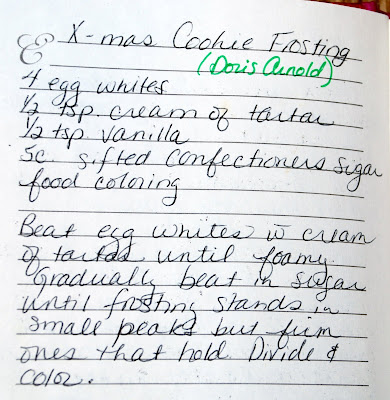 X-mas Cookie Frosting
(Doris Arnold)
4 egg whites
1/2 tsp. cream of tartar
1/2 tsp vanilla
5c. sifted confectioners sugar
food coloring
Beat egg whites w̄ cream
of tartar until foamy.
Gradually beat in sugar
until frosting stands in
small peaks but firm
ones that hold. Divide &
color.